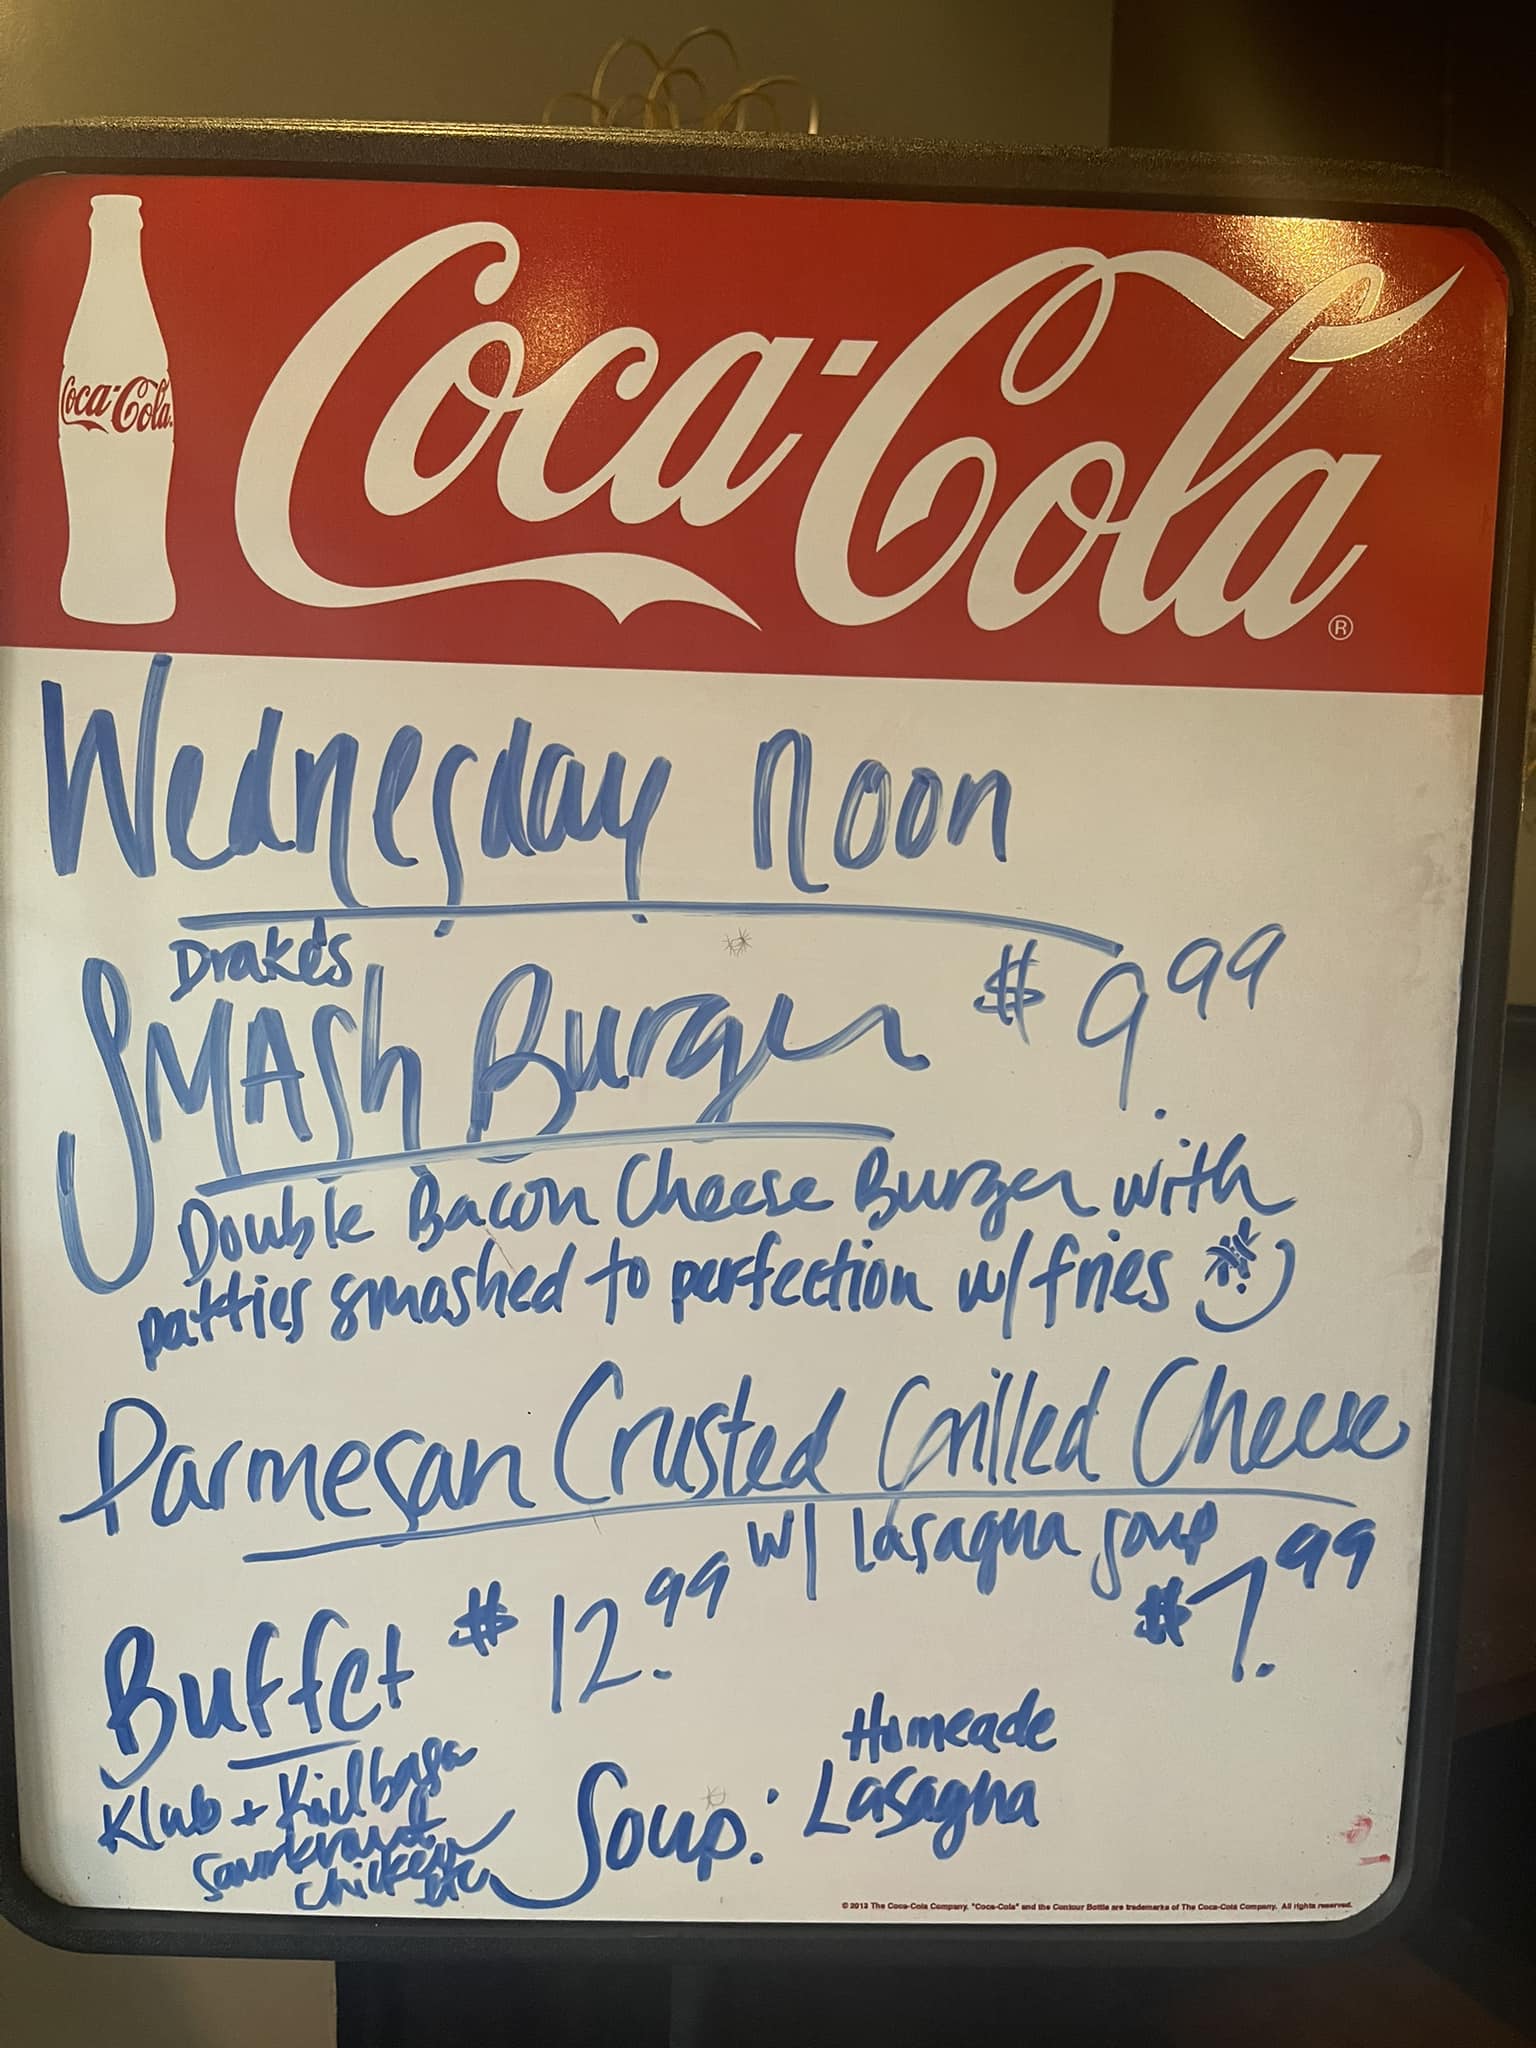 Coca-Cola
Coca-Cola ®
Wednesday Noon
Drake's
SMASh Burger $9.99
Double Bacon Cheese Burger with
patties smashed to perfection w/ fries
Parmesan Crusted Grilled Cheese
w/ lasagna soup
$7.99
Buffet $12.99
Klub + Kielbasa
Saurkraut
Chicken
etc
Soup: Homeade
Lasagna
© 2013 The Coca-Cola Company. "Coca-Cola" and the Contour Bottle are trademarks of The Coca-Cola Company. All rights reserved.